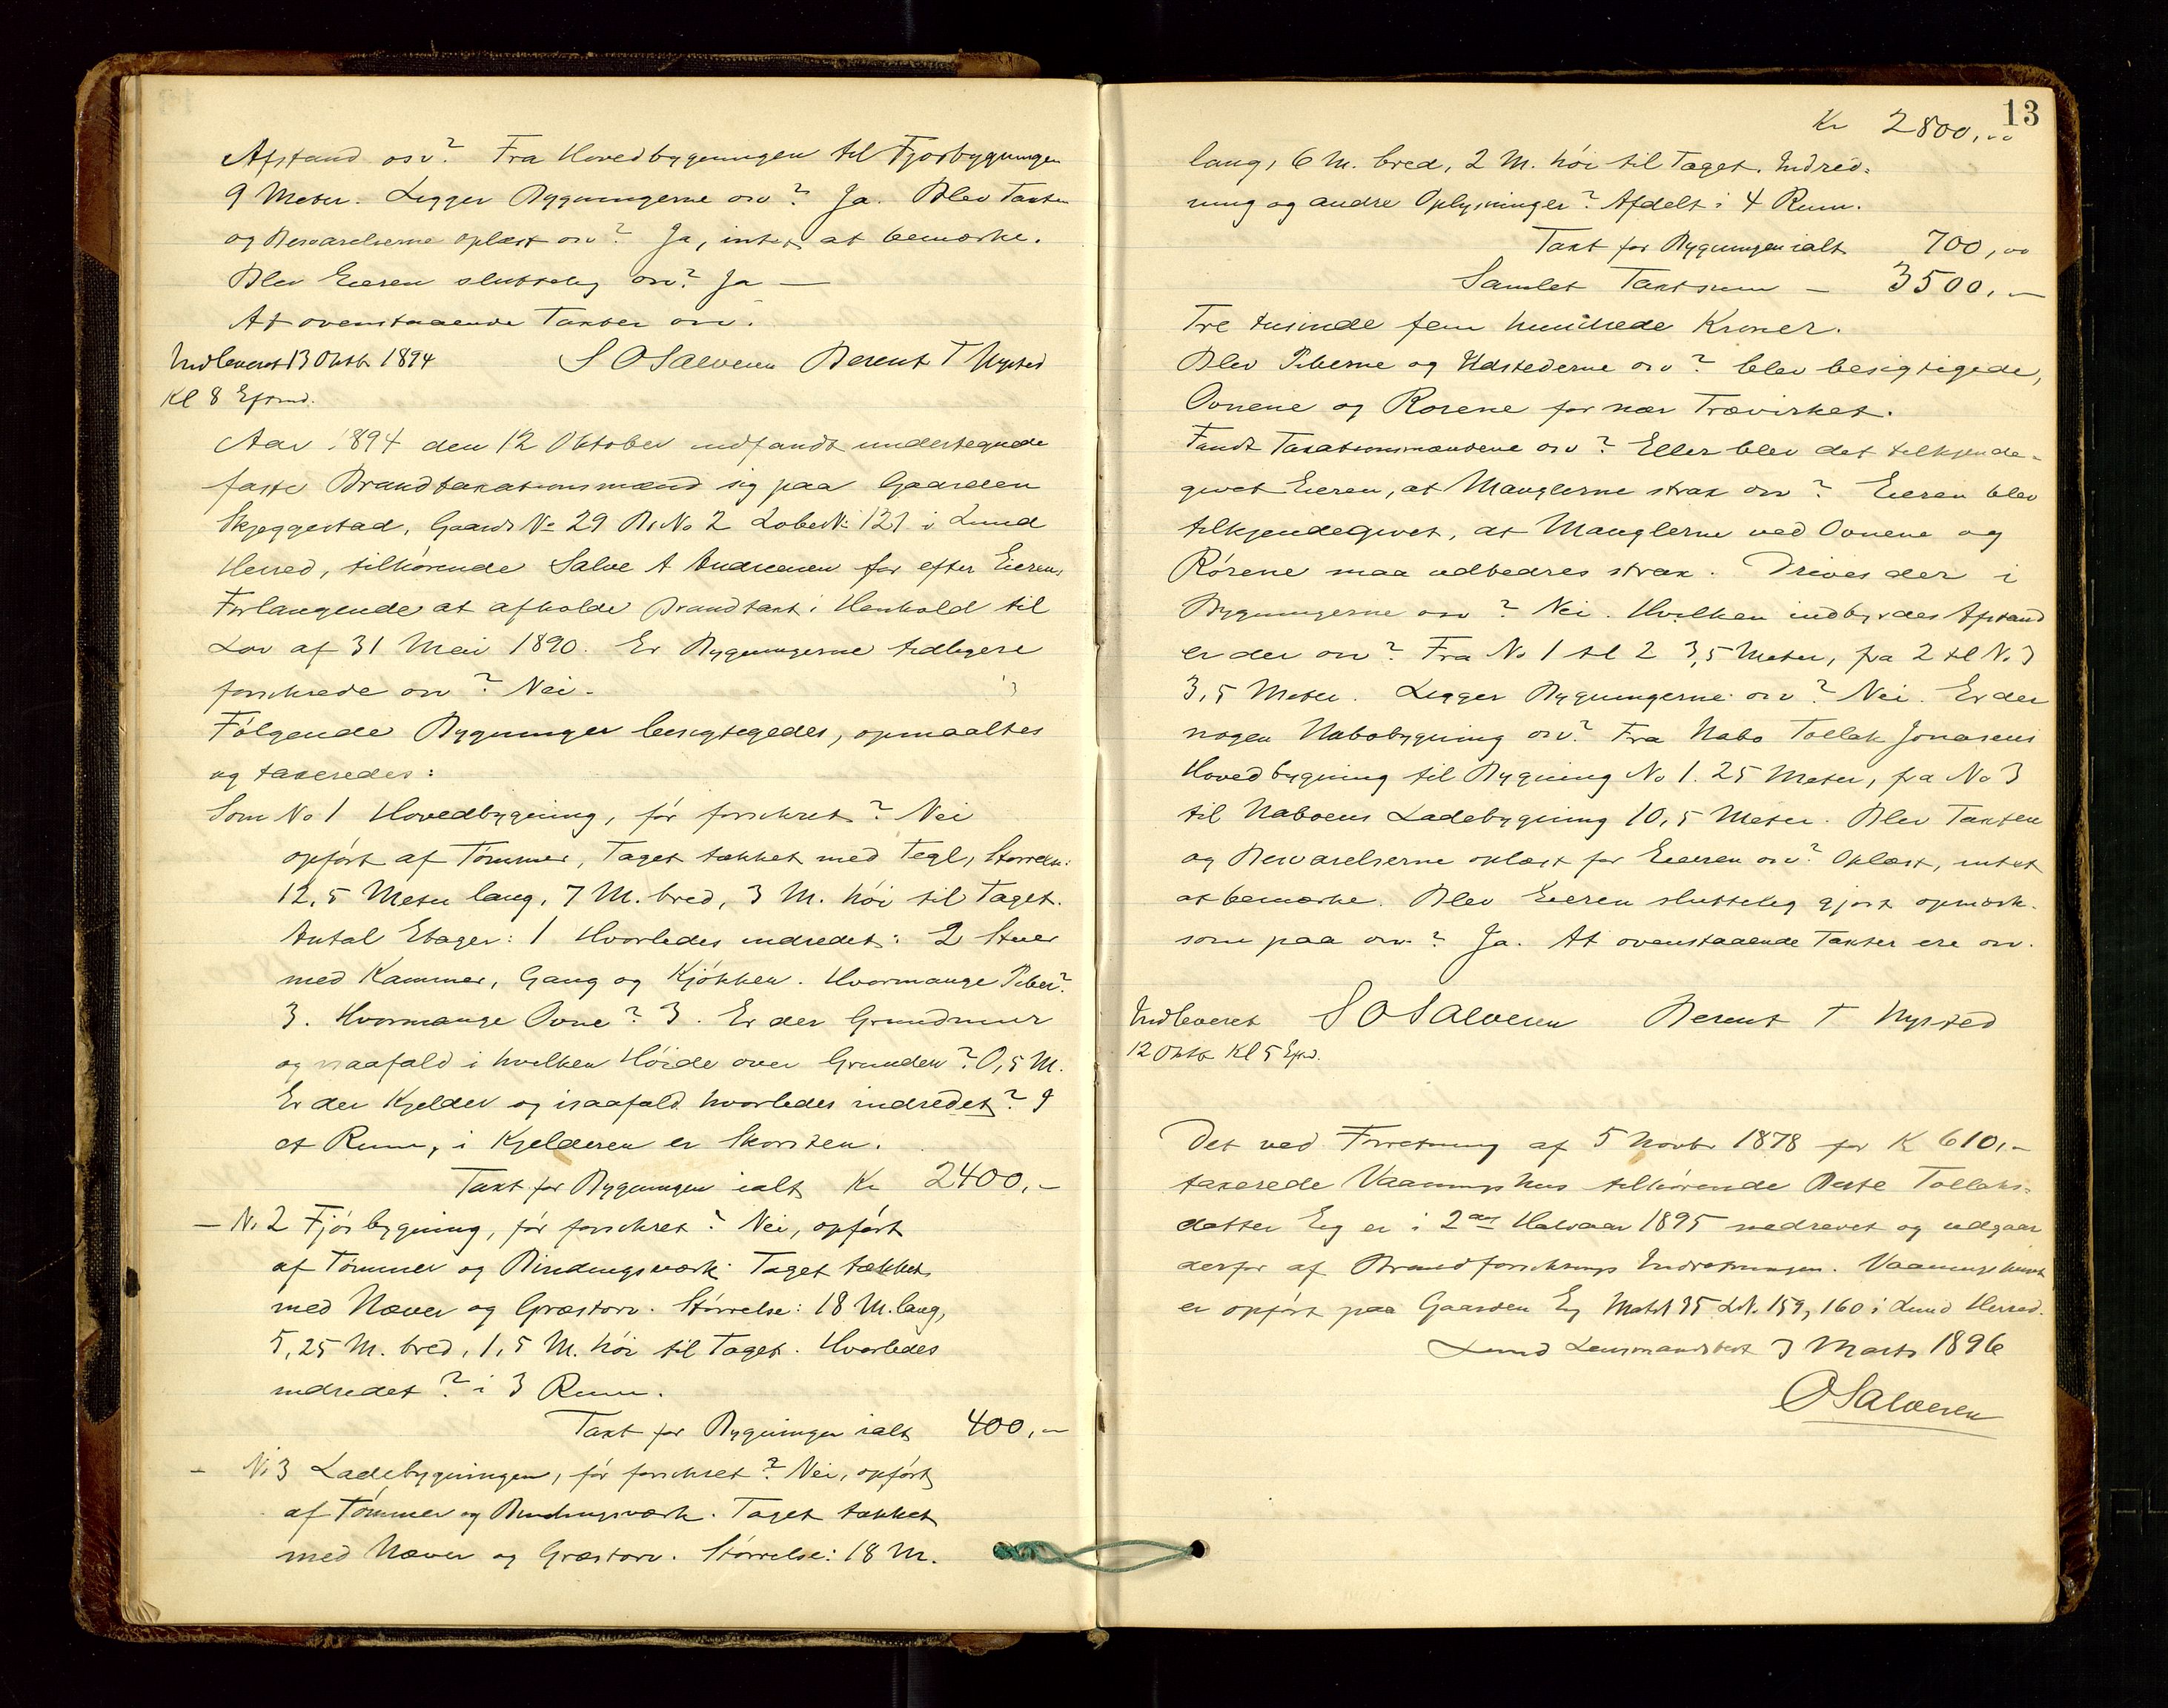 Afstand osv? Fra Hovedbygningen til Fjøsbygningen
9 Meter. Ligger Bygningerne osv? Ja. Blev Taxten
og Besvarelserne oplæst osv? Ja, intet at bemærke.
Blev Eieren sluttelig osv? Ja —
At ovenstaaende Taxter osv.
Indleveret 13 Oktb 1894 S O Salvesen Berent T Nysted
Kl 8 Eftmd.
Aar 1894 den 12 Oktober indfandt undertegnede
faste Brandtaxationsmænd sig paa Gaarden
Skjeggestad, Gaards No 29 Br No 2 Løbe No 121 i Lund
Herred, tilhørende Salve A Andreasen for efter Eierens
Forlangende at afholde Brandtaxt i Henhold til
Lov af 31 Mai 1890. Er Bygningerne tidligere
forsikrede osv? Nei.
Følgende Bygninger besigtigedes, opmaaltes
og taxeredes:
Som No 1 Hovedbygning, før forsikret? Nei
opført af Tømmer, Taget tækket med Tegl, Størrelse:
12,5 Meter lang, 7 M. bred, 3 M. høi til Taget.
Antal Etager: 1 Hvorledes indredet: 2 Stuer
med Kammer, Gang og Kjøkken. Hvormange Piber?
3. Hvormange Ovne? 3. Er der Grundmur
og isaafald i hvilken Høide over Grunden? 0,5 M.
Er der Kjelder og isaafald hvorledes indredet? I
et Rum, i Kjelderen er Skorsten.
Taxt for Bygningen ialt Kr 2400,-
— No 2 Fjøsbygning, før forsikret? Nei, opført
af Tømmer og Bindingsværk. Taget tækket
med Næver og Græstorv. Størrelse: 18 M. lang,
5,25 M. bred, 1,5 M. høi til Taget. Hvorledes
indredet? i 3 Rum.
Taxt for Bygningen ialt 400,-
- No 3 Ladebygningen, før forsikret? Nei, opført
af Tømmer og Bindingsværk. Taget tækket
med Næver og Græstorv. Størrelse: 18 M.
13
Kr 2800,00
lang, 6 M. bred, 2 M. høi til Taget. Indred-
ning og andre Oplysninger? Afdelt i 4 Rum.
Taxt for Bygningen ialt 700,00
Samlet Taxtsum — 3500,-
Tre tusinde fem hundrede Kroner.
Blev Piberne og Ildstederne osv? blev besigtigede,
Ovnene og Rørene for nær Trævirket.
Fandt Taxationsmændene osv? Eller blev det tilkjende-
givet Eieren, at Manglerne strax osv? Eieren blev
tilkjendegivet, at Manglerne ved Ovnene og
Rørene maa udbedres strax. Drives der i
Bygningerne osv? Nei. Hvilken indbyrdes Afstand
er der osv? Fra No 1 til 2 3,5 Meter, fra 2 til No 3
3,5 Meter. Ligger Bygningerne osv? Nei. Er der
nogen Nabobygning osv? Fra Nabo Tollak Jonasens
Hovedbygning til Bygning No 1. 25 Meter, fra No 3
til Naboens Ladebygning 10,5 Meter. Blev Taxten
og Besvarelserne oplæst for Eieren osv? Oplæst, intet
at bemærke. Blev Eieren sluttelig gjort opmærk-
som paa osv.? Ja. At ovenstaaende Taxter ere osv.
Indleveret S O Salvesen Berent T Nysted
12 Oktb Kl 5 Eftmd.
Det ved Forretning af 5 Novbr 1878 for K 610,-
taxerede Vaaningshus tilhørende Berte Tollaks-
datter Eig er i 2det Halvaar 1895 nedrevet og udgaar
derfor af Brandforsikrings Indretningen. Vaaningshuset
er opført paa Gaarden Eig Matr No 95 L.N. 159, 160 i Lund Herred.
Lund Lensmandsbest 3 Marts 1896
O Salvesen